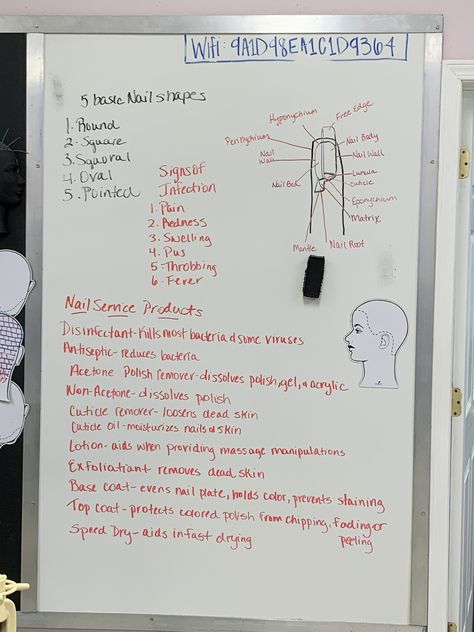 Wifi: 9A1D98EA1C1D9364
5 basic Nail shapes
1. Round
2. Square
3. Squoral
4. Oval
5. Pointed
Signs of
Infection
1. Pain
2. Redness
3. Swelling
4. Pus
5. Throbbing
6. Fever
Hyponychium
Free Edge
Perinychium
Nail Body
Nail
Wall
Nail Wall
Nail Bed
Lunula
cuticle
Eponychium
Matrix
Mantle
Nail Root
Nail Service Products
Disinfectant-Kills most bacteria & some viruses
Antiseptic-reduces bacteria
Acetone Polish remover-dissolves polish, gel, & acrylic
Non-Acetone-dissolves polish
Cuticle remover-loosens dead skin
Cuticle oil-moisturizes nails & skin
Lotion-aids when providing massage manipulations
Exfoliant-removes dead skin
Base coat-evens nail plate, holds color, prevents staining
Top coat-protects colored polish from chipping, fading or
peeling
Speed Dry-aids in fast drying